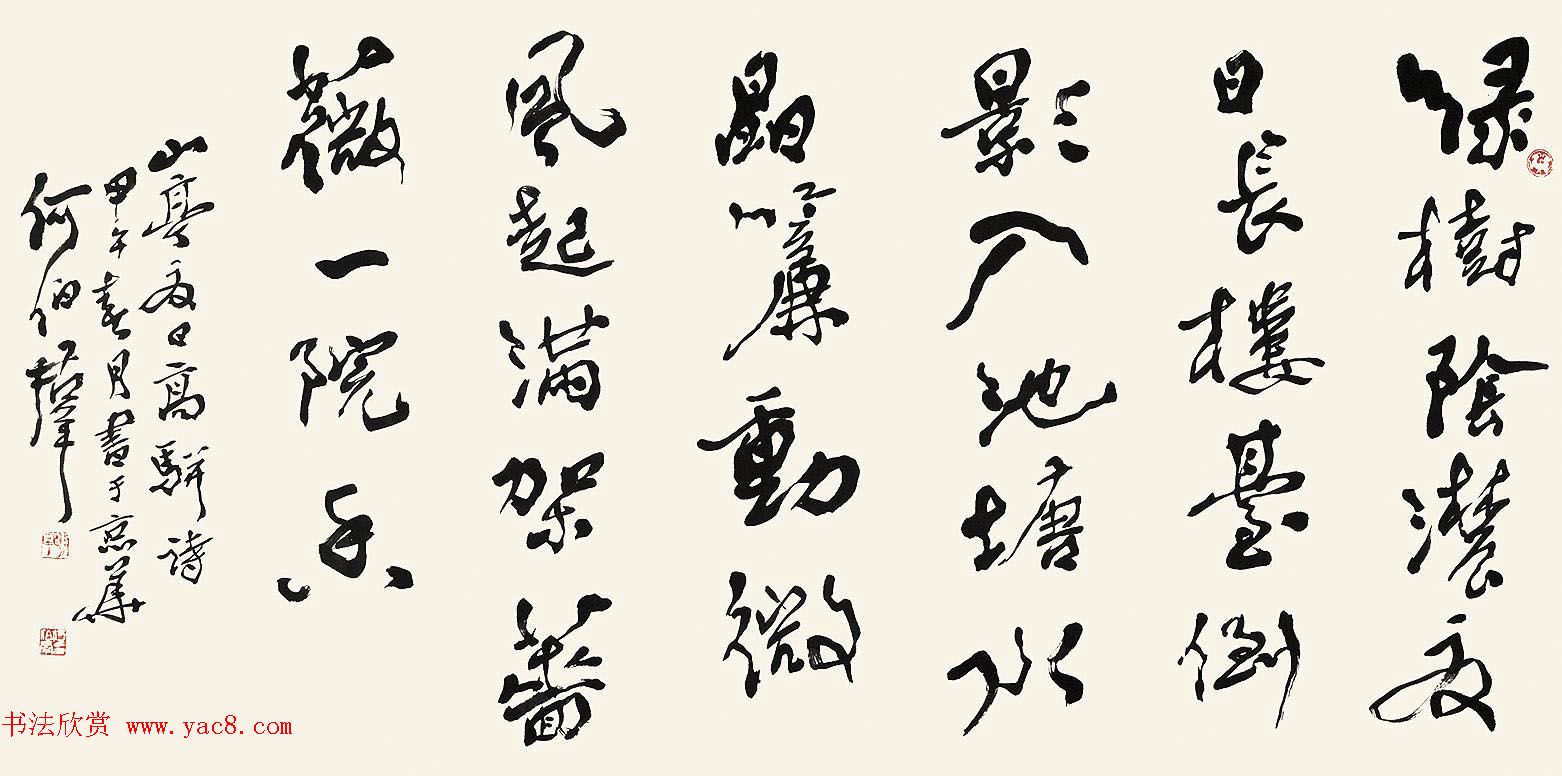 綠樹陰濃夏
日長樓臺倒
影入池塘水
晶簾動微
風起滿架薔
薇一院香
山亭夏日高駢詩
甲午春月書于京華
何伯羣
书法欣赏 www.yac8.com